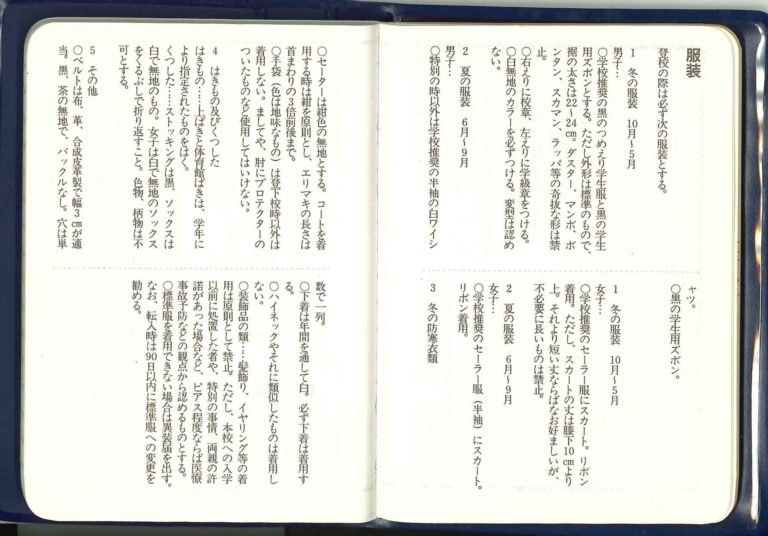 服装
登校の際は必ず次の服装とする。
1 冬の服装 10月～5月
男子…
○学校推奨の黒のつめえり学生服と黒の学生
用ズボンとする。ただし外形は標準のもので、
裾の太さは22～24㎝。ダスター、マンボ、ボ
ンタン、スカマン、ラッパ等の奇抜な形は禁
止。
○右えりに校章、左えりに学級章をつける。
○白無地のカラーを必ずつける。変型は認め
ない。
2 夏の服装 6月～9月
男子…
○特別の時以外は学校推奨の半袖の白ワイシ
ャツ。
○黒の学生用ズボン。
1 冬の服装 10月～5月
女子…
○学校推奨のセーラー服にスカート。リボン
着用。ただし、スカートの丈は膝下10㎝より
上。それより短い丈ならばなお好ましいが、
不必要に長いものは禁止。
2 夏の服装 6月～9月
女子…
○学校推奨のセーラー服（半袖）にスカート。
リボン着用。
3 冬の防寒衣類
○セーターは紺色の無地とする。コートを着
用する時は紺を原則とし、エリマキの長さは
首まわりの3倍前後まで。
○手袋（色は地味なもの）は登下校時以外は
着用しない。ましてや、肘にプロテクターの
ついたものなど使用してはいけない。
4 はきもの及びくつした
はきもの……上ばきと体育館ばきは、学年に
より指定されたものをはく。
くつした……ストッキングは黒、ソックスは
白で無地のもの。女子は白で無地のソックス
をくるぶしで折り返すこと。色物、柄物は不
可とする。
5 その他
○ベルトは布、革、合成皮革製で幅3㎝が適
当。黒、茶の無地で、バックルなし。穴は単
数で一列。
○下着は年間を通して白。必ず下着は着用す
る。
○ハイネックやそれに類似したものは着用し
ない。
○装飾品の類…髪飾り、イヤリング等の着
用は原則として禁止。ただし、本校への入学
以前に処置した者や、特別の事情、両親の許
諾があった場合など、ピアス程度ならば医療
事故予防などの観点から認めるものとする。
○標準服を着用できない場合は異装届を出す。
なお、転入時は90日以内に標準服への変更を
勧める。